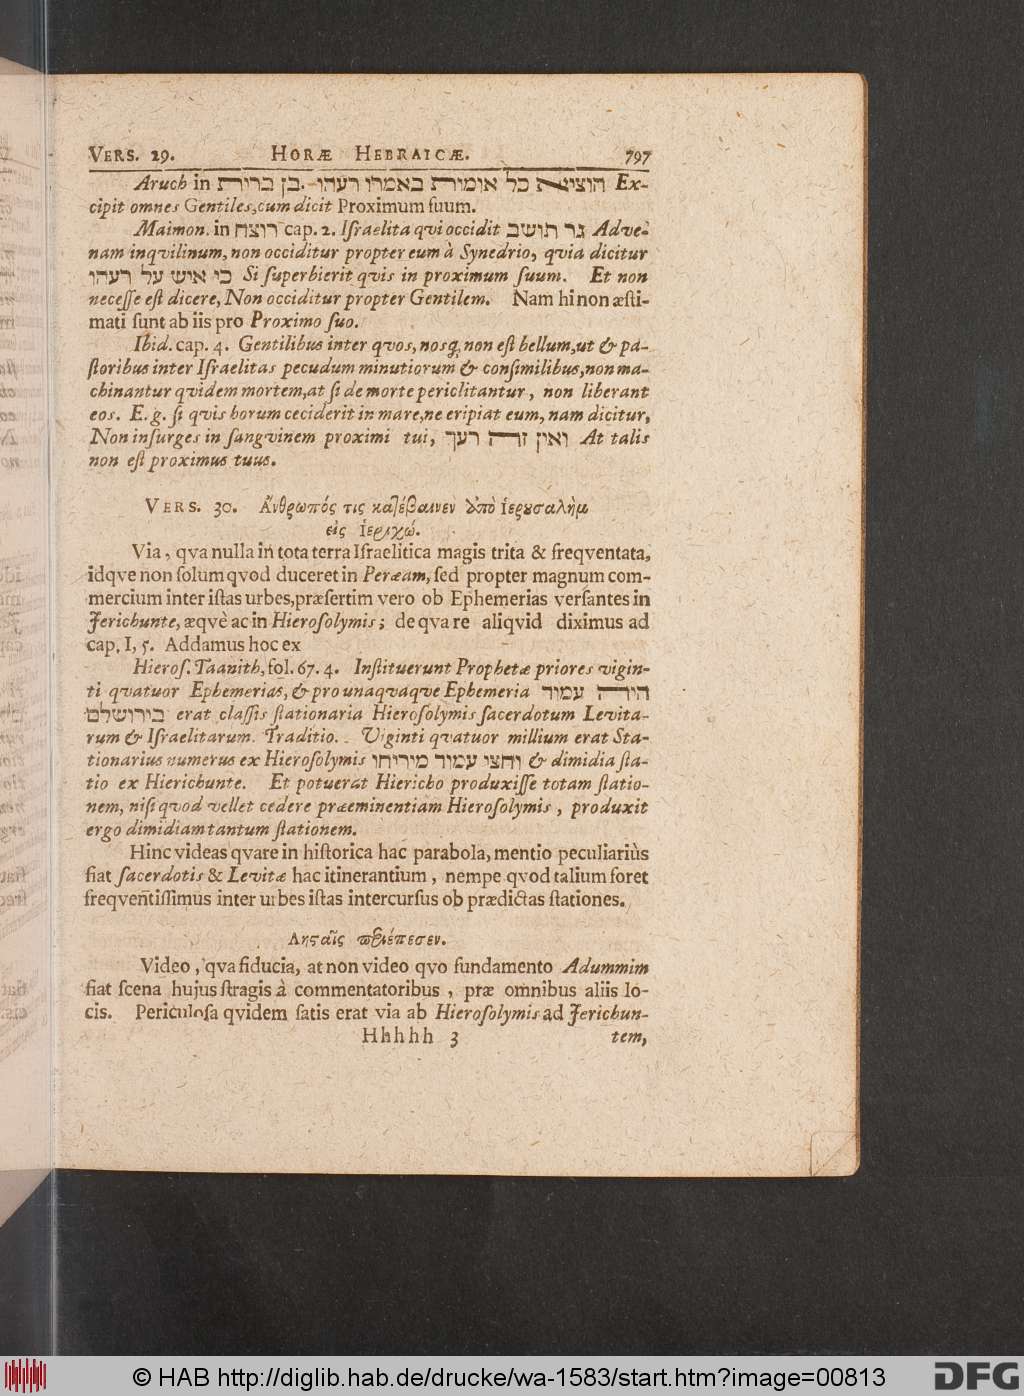 VERS. 29. HORÆ HEBRAICÆ. 797
Aruch in בן ברית. הוציא את כל אומות באמרו רעהו Ex-
cipit omnes Gentiles, cum dicit Proximum suum.
Maimon. in רוצח cap. 2. Israelita qvi occidit גר תושב Adve-
nam inqvilinum, non occiditur propter eum à Synedrio, qvia dicitur
כי איש על רעהו Si superbierit qvis in proximum suum. Et non
necesse est dicere, Non occiditur propter Gentilem. Nam hi non æsti-
mati sunt ab iis pro Proximo suo.
Ibid. cap. 4. Gentilibus inter qvos, nosq; non est bellum, ut & pa-
storibus inter Israelitas pecudum minutiorum & consimilibus, non ma-
chinantur qvidem mortem, at si de morte periclitantur, non liberant
eos. E. g. si qvis horum ceciderit in mare, ne eripiat eum, nam dicitur,
Non insurges in sangvinem proximi tui, ואין זה רעך At talis
non est proximus tuus.
VERS. 30. Ἄνθρωπός τις κατέβαινεν ἀπὸ Ἱερουσαλὴμ
εἰς Ἱεριχώ.
Via, qva nulla in tota terra Israelitica magis trita & freqventata,
idqve non solum qvod duceret in Peræam, sed propter magnum com-
mercium inter istas urbes, præsertim vero ob Ephemerias versantes in
Jerichunte, æqvè ac in Hierosolymis; de qva re aliqvid diximus ad
cap. I, 5. Addamus hoc ex
Hieros. Taanith, fol. 67. 4. Instituerunt Prophetæ priores vigin-
ti qvatuor Ephemerias, & pro unaqvaqve Ephemeria היה עמוד
בירושלם erat classis stationaria Hierosolymis sacerdotum Levita-
rum & Israelitarum. Traditio. Viginti qvatuor millium erat Sta-
tionarius numerus ex Hierosolymis וחצי עמוד מיריחו & dimidia sta-
tio ex Hierichunte. Et potuerat Hiericho produxisse totam statio-
nem, nisi qvod vellet cedere præeminentiam Hierosolymis, produxit
ergo dimidiam tantum stationem.
Hinc videas qvare in historica hac parabola, mentio peculiariùs
fiat sacerdotis & Levitæ hac itinerantium, nempe qvod talium foret
freqventissimus inter urbes istas intercursus ob prædictas stationes.
Λησταῖς περιέπεσεν.
Video, qva fiducia, at non video qvo fundamento Adummim
fiat scena hujus stragis à commentatoribus, præ omnibus aliis lo-
cis. Periculosa qvidem satis erat via ab Hierosolymis ad Jerichun-
Hhhhh 3 tem,
© HAB http://diglib.hab.de/drucke/wa-1583/start.htm?image=00813 DFG